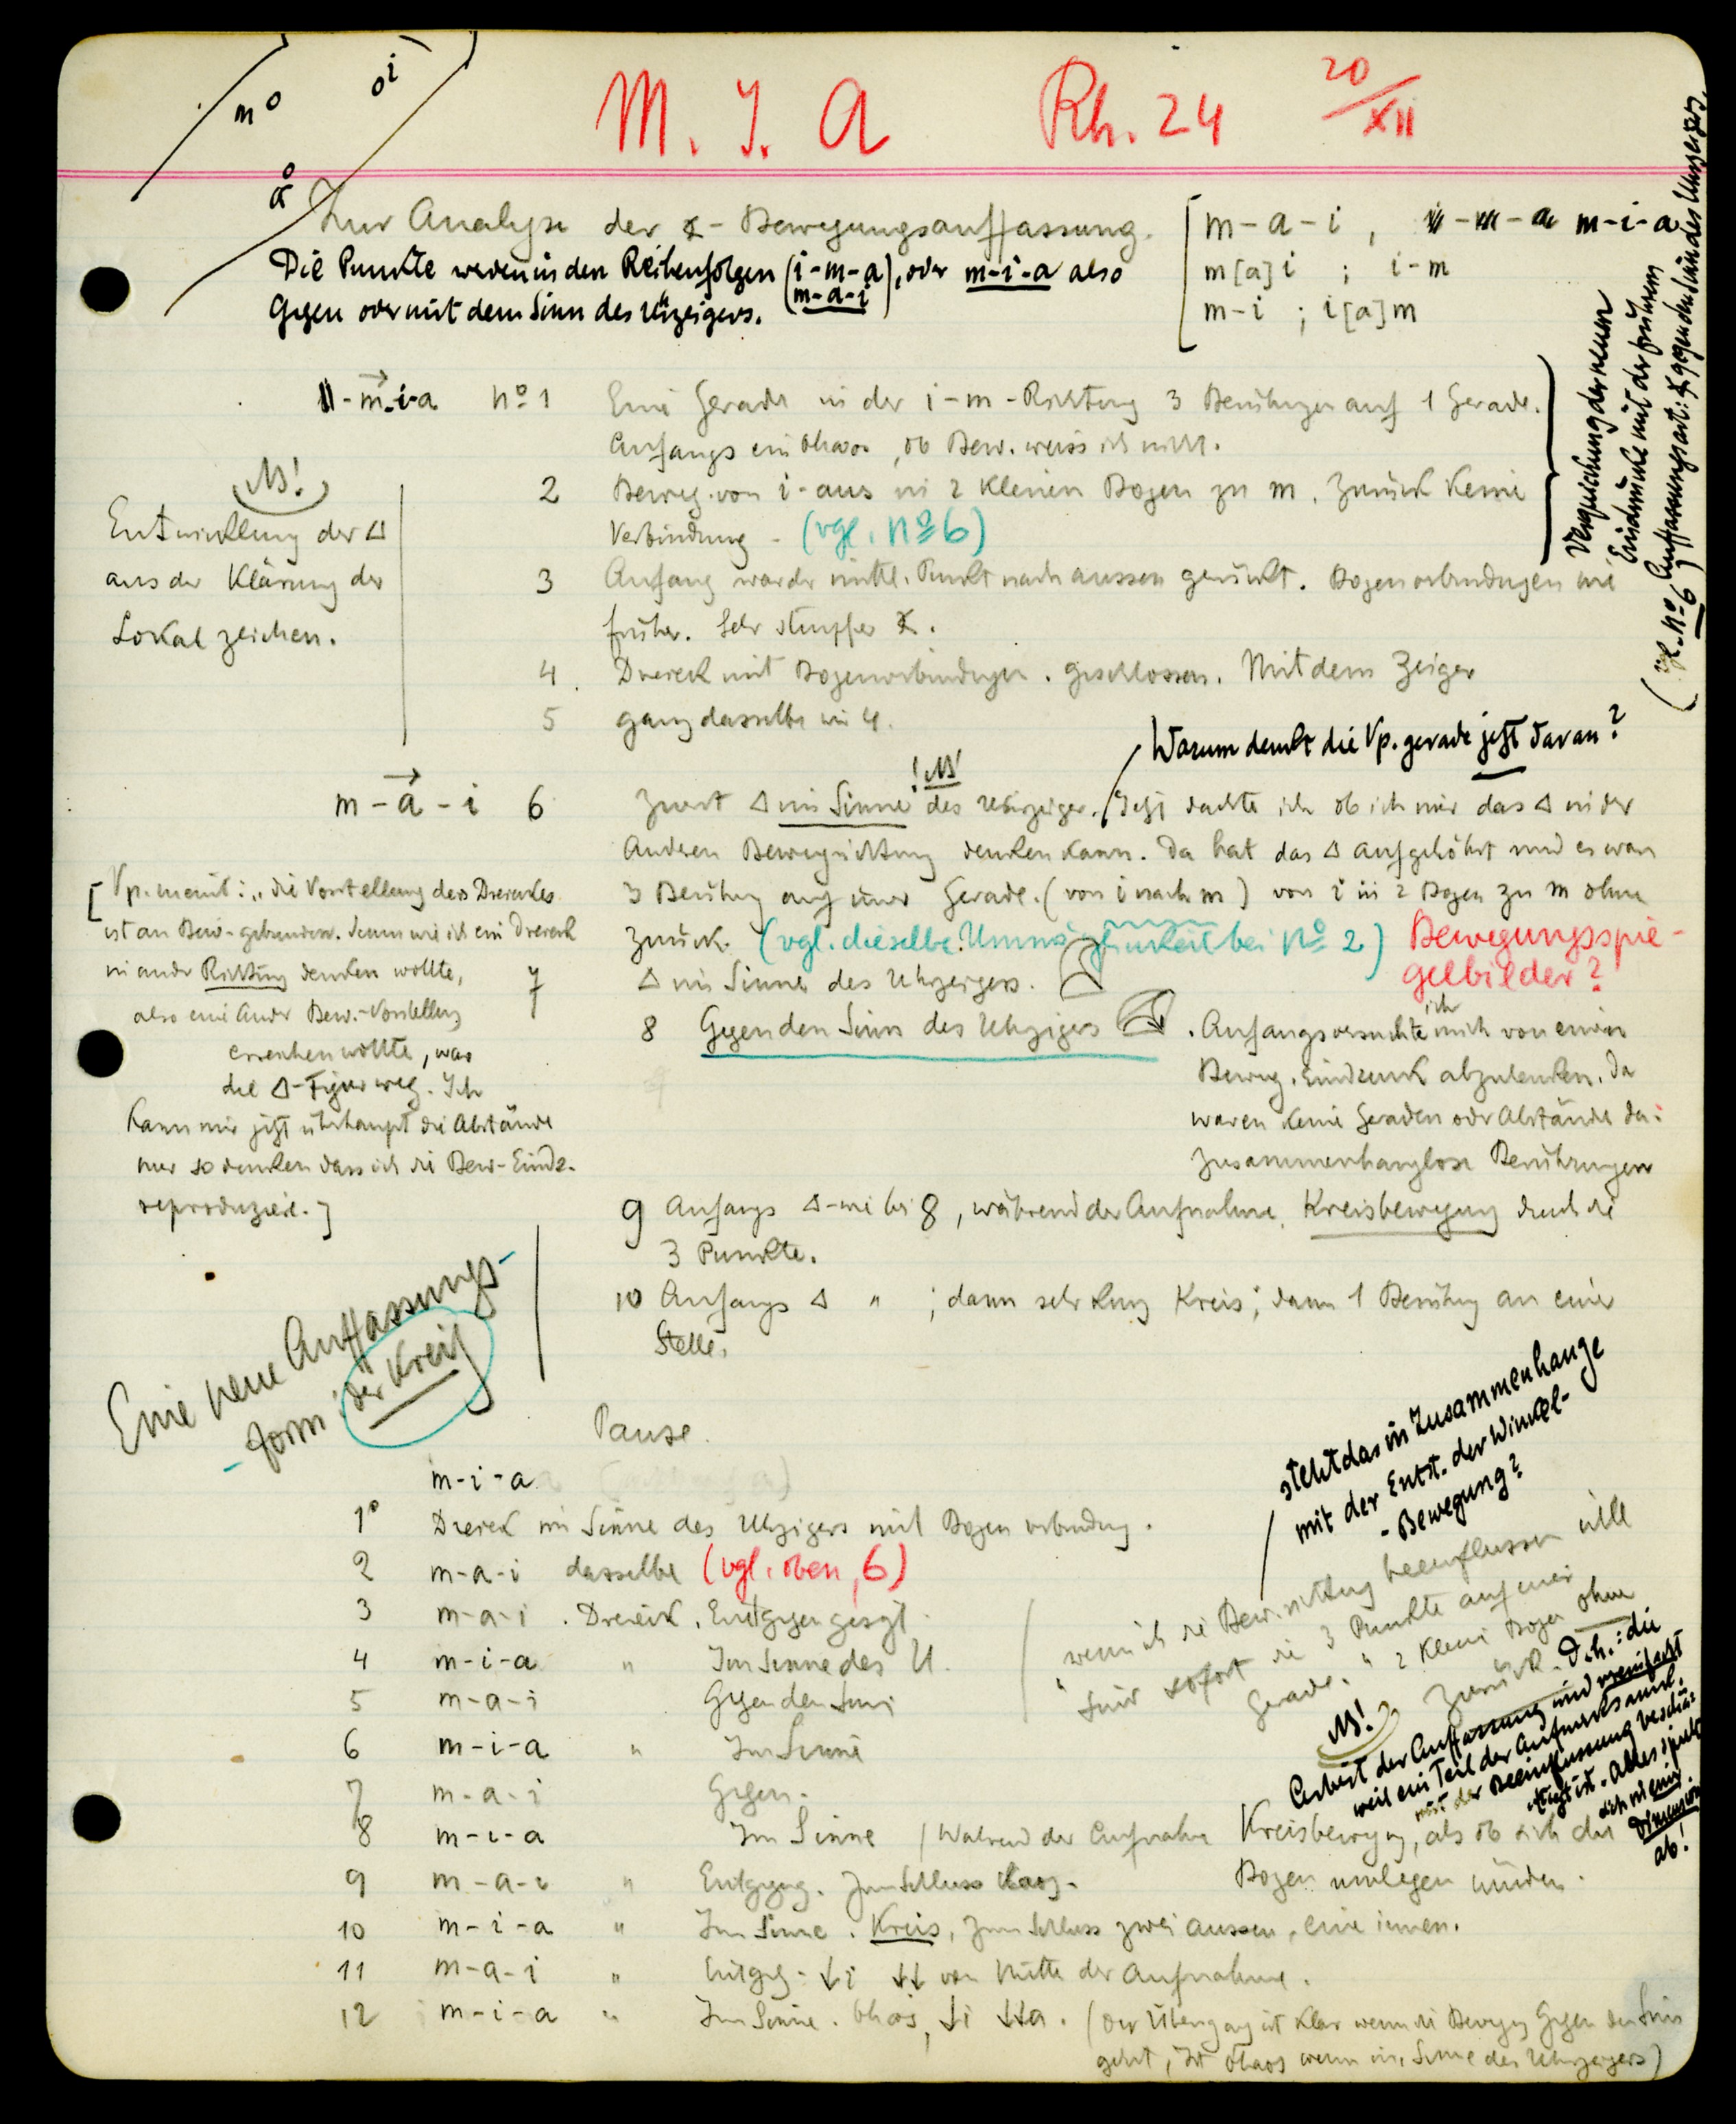 m o
o i
a o
M. I. A Rh. 24 20/XII
Zur Analyse der ∡ - Bewegungsauffassung.
Die Punkte werden in den Reihenfolgen (i-m-a), oder m-i-a also
(m-a-i)
Gegen oder mit dem Sinn des Uhrzeigers.
[ m-a-i , m-i-a
m[a]i ; i-m
m-i ; i[a]m
m-i-a No 1 Eine Gerade in der i-m-Richtung 3 Berührungen auf 1 Gerade.
Anfangs ein Chaos, ob Bew. weiss ich nicht.
2 Beweg. von i-aus in 2 kleinen Bogen zu m. Zurück keine
Verbindung - (vgl. No 6)
3 Anfang war der mittl. Punkt nach aussen gerückt. Bogenverbindungen wie
früher. Sehr stumpfer ∡.
4. Dreieck mit Bogenverbindungen. geschlossen. Mit dem Zeiger
5 ganz dasselbe wie 4.
Vergleichung der neuen
Eindrücke mit der frühern
Auffassungsart: ∡ gegen den Sinn des Uhrzeigers.
(vgl. No 6)
NB!
Entwicklung der Δ
aus der Klärung der
Lokalzeichen.
Warum denkt die Vp. gerade jetzt daran?
! NB
m-a-i 6 Zuerst Δ im Sinne des Uhrzeiger. / Jetzt dachte ich ob ich mir das Δ in der
Anderen Bewegrichtung denken kann. Da hat das Δ aufgehört und es war
3 Berührung auf einer Gerade. (von i nach m) von i in 2 Bogen zu m ohne
zurück. (vgl. dieselbe Unmöglichkeit bei No 2) Bewegungsspie-
gelbilder?
7 Δ im Sinne des Uhrzeigers.
8 Gegen den Sinn des Uhrzeigers . Anfangs versuchte ich mich von einem
Beweg. Eindruck abzulenken. Da
waren keine Geraden oder Abstände da:
Zusammenhanglose Berührungen
[Vp. meint: „die Vorstellung des Dreieckes
ist an Bew. gebunden. Denn wie ich ein Dreieck
in andr Richtung denken wollte,
also eine andr Bew.-Vorstellung
erreichen wollte, war
die Δ-Figur weg. Ich
kann mir jetzt überhaupt die Abstände
nur so denken dass ich die Bew-Eindr.
reproduziere.]
9 Anfangs Δ-wie bei 8, während der Aufnahme, Kreisbewegung durch die
3 Punkte.
10 Anfangs Δ " ; dann sehr kurz Kreis; dann 1 Berührung an einer
Stelle.
Eine neue Auffassungs-
-form: der Kreis
Pause.
m-i-a
1° Dreieck im Sinne des Uhrzeigers mit Bogen verbindung.
2 m-a-i dasselbe (vgl. oben, 6)
3 m-a-i . Dreieck. Entgegengesgt.
4 m-i-a " Im Sinne des U.
5 m-a-i Gegen den Sinn
6 m-i-a " Im Sinne
7 m-a-i Gegen.
8 m-i-a Im Sinne / Während der Aufnahme Kreisbewegung, als ob sich die
Bogen umlegen würden.
9 m-a-i " Entgegeng. Zum Schluss Chaos.
10 m-i-a " Im Sinne. Kreis, zum Schluss zwei aussen, eine innen.
11 m-a-i " Entgeg. ↓i ↓↓ von Mitte der Aufnahme.
12 m-i-a " Im Sinne. Chaos, ↓i ↓↓a. (Der Übergang ist klar wenn die Bewegung Gegen den Sinn
geht, ist Chaos wenn im Sinne des Uhrzeigers)
steht das in Zusammenhange
mit der Entst. der Winkel-
-Bewegung?
wenn ich die Bew.richtung beeinflussen will
sind sofort die 3 Punkte auf einer
Gerade. " 2 kleine Bogen ohne
zurück.
NB! D.h.: die
Arbeit der Auffassung wird vereinfacht
weil ein Teil der Aufmerksamk.
mit der Beeinflussung beschäf-
tigt ist. Alles spielt
sich in einer
Dimension
ab!